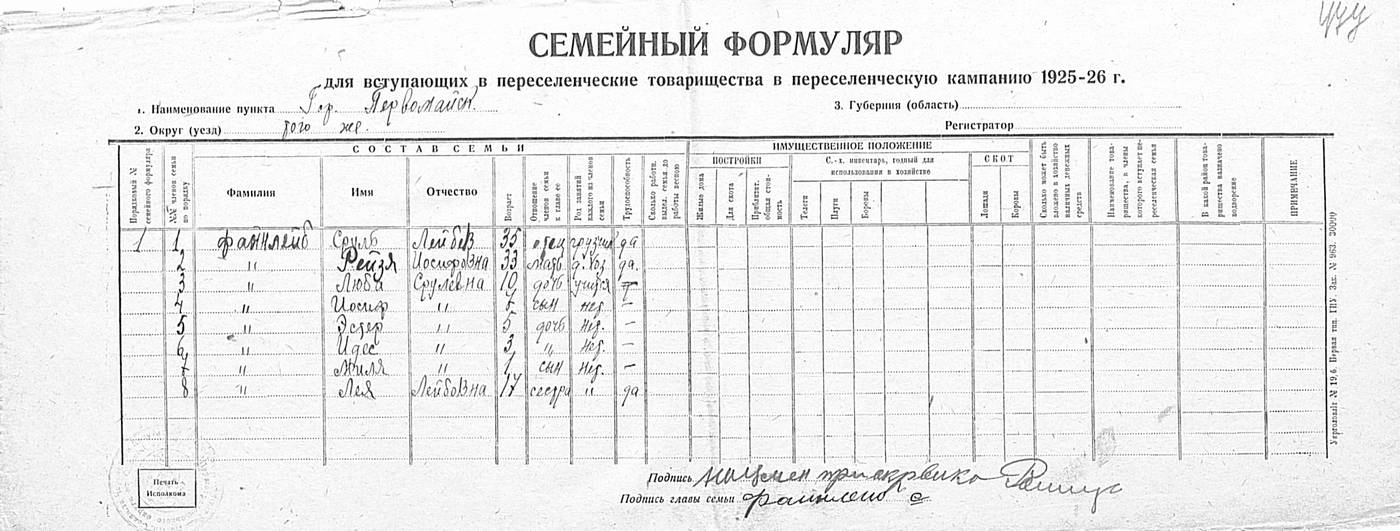 СЕМЕЙНЫЙ ФОРМУЛЯР
для вступающих в переселенческие товарищества в переселенческую кампанию 1925-26 г.
1. Наименование пункта Гор. Первомайск. 3. Губерния (область)
2. Округ (уезд) того же. Регистратор
СОСТАВ СЕМЬИ ИМУЩЕСТВЕННОЕ ПОЛОЖЕНИЕ
Порядковый № семейного формуляра
№№ членов семьи по порядку
Фамилия
Имя
Отчество
Возраст
Отношение членов семьи к главе ее
Род занятий каждого из членов семьи
Трудоспособность
Сколько работн. выдел. семья до работы весною
ПОСТРОЙКИ
Жилые дома
Для скота
Приблизит. общая стоимость
С.-х. инвентарь, годный для использования в хозяйстве
Телеги
Плуги
Бороны
СКОТ
Лошади
Коровы
Сколько может быть вложено в хозяйство наличных денежных средств
Наименование товарищества, в члены которого вступает переселенческая семья
В какой район товарищества назначено водворение
ПРИМЕЧАНИЕ
1 1 Файнлейб Сруль Лейбов 35 отец грузчик да
2 " Рейзя Иосифовна 33 мать д. хоз да.
3 " Люба Срулевна 10 дочь учится
4 " Иосиф " 7 сын нет. —
5 " Эстер " 5 дочь нет. —
6 " Идес " 3 " нет. —
7 " Жиля " 1 сын нет. —
8 " Лея Лейбовна 17 сестра " да
Печать Исполкома
Подпись
Подпись главы семьи Файнлейб С